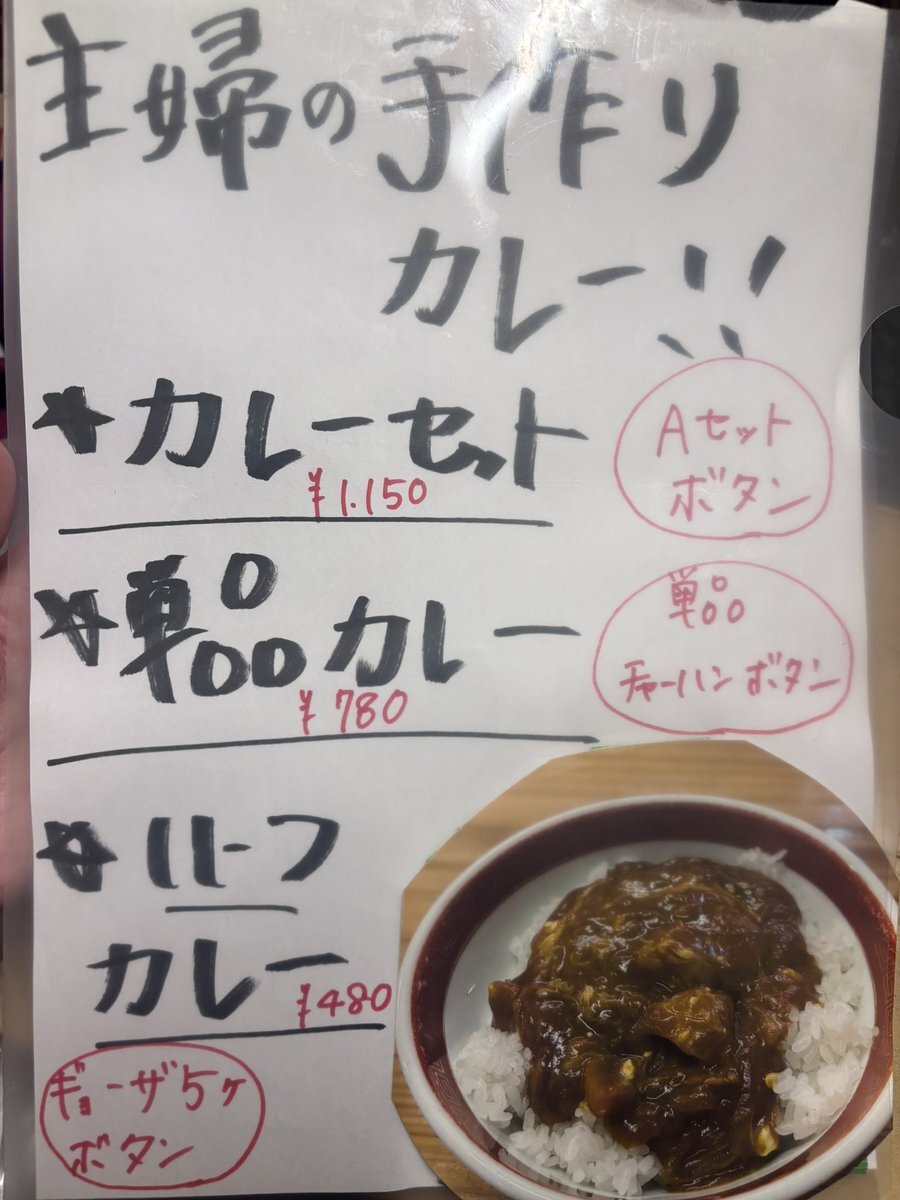 主婦の手作り
カレー
★カレーセット
¥1.150
Aセット
ボタン
★単品カレー
¥780
単品
チャーハンボタン
★ハーフ
カレー
¥480
ギョーザ5ヶ
ボタン